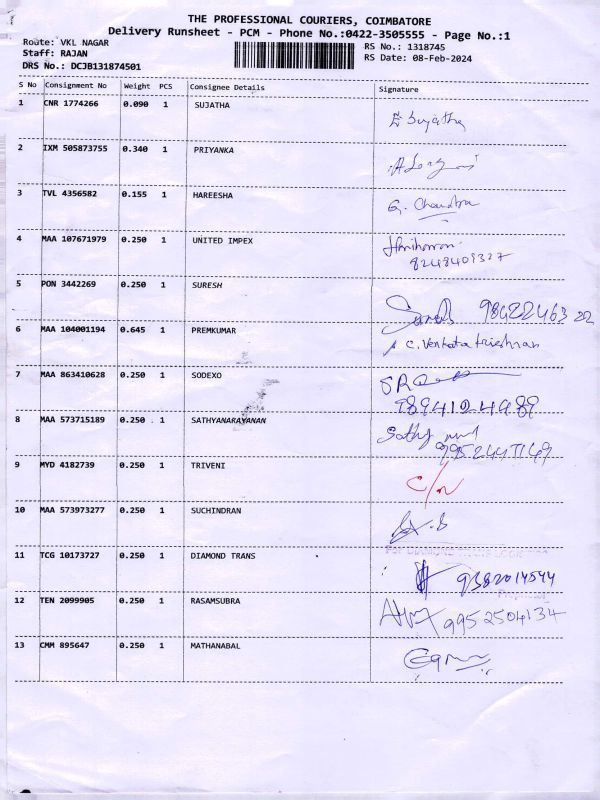 THE PROFESSIONAL COURIERS, COIMBATORE
Delivery Runsheet - PCM - Phone No.:0422-3505555 - Page No.:1
Route: VKL NAGAR RS No.: 1318745
Staff: RAJAN RS Date: 08-Feb-2024
DRS No.: DCJB131874501
S No Consignment No Weight PCS Consignee Details Signature
1 CNR 1774266 0.090 1 SUJATHA Sujatha
2 IXM 505873755 0.340 1 PRIYANKA
3 TVL 4356582 0.155 1 HAREESHA G. Chandra
4 MAA 107671979 0.250 1 UNITED IMPEX
8248409327
5 PON 3442269 0.250 1 SURESH Suresh
6 MAA 104001194 0.645 1 PREMKUMAR C. Venkata Krishnan
7 MAA 863410628 0.250 1 SODEXO
9894124989
8 MAA 573715189 0.250 1 SATHYANARAYANAN Sathy
9 MYD 4182739 0.250 1 TRIVENI C/N
10 MAA 573973277 0.250 1 SUCHINDRAN
11 TCG 10173727 0.250 1 DIAMOND TRANS 9382014544
12 TEN 2099905 0.250 1 RASAMSUBRA 9952504134
13 CMM 895647 0.250 1 MATHANABAL